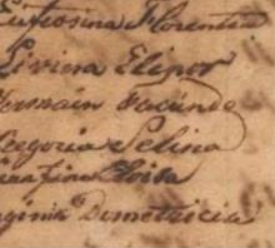 Eufrosina Florentin
Liviera Elipor
Germain Facundo
Gregoria Selina
Serafina Eloisa
Virginia Demetricia